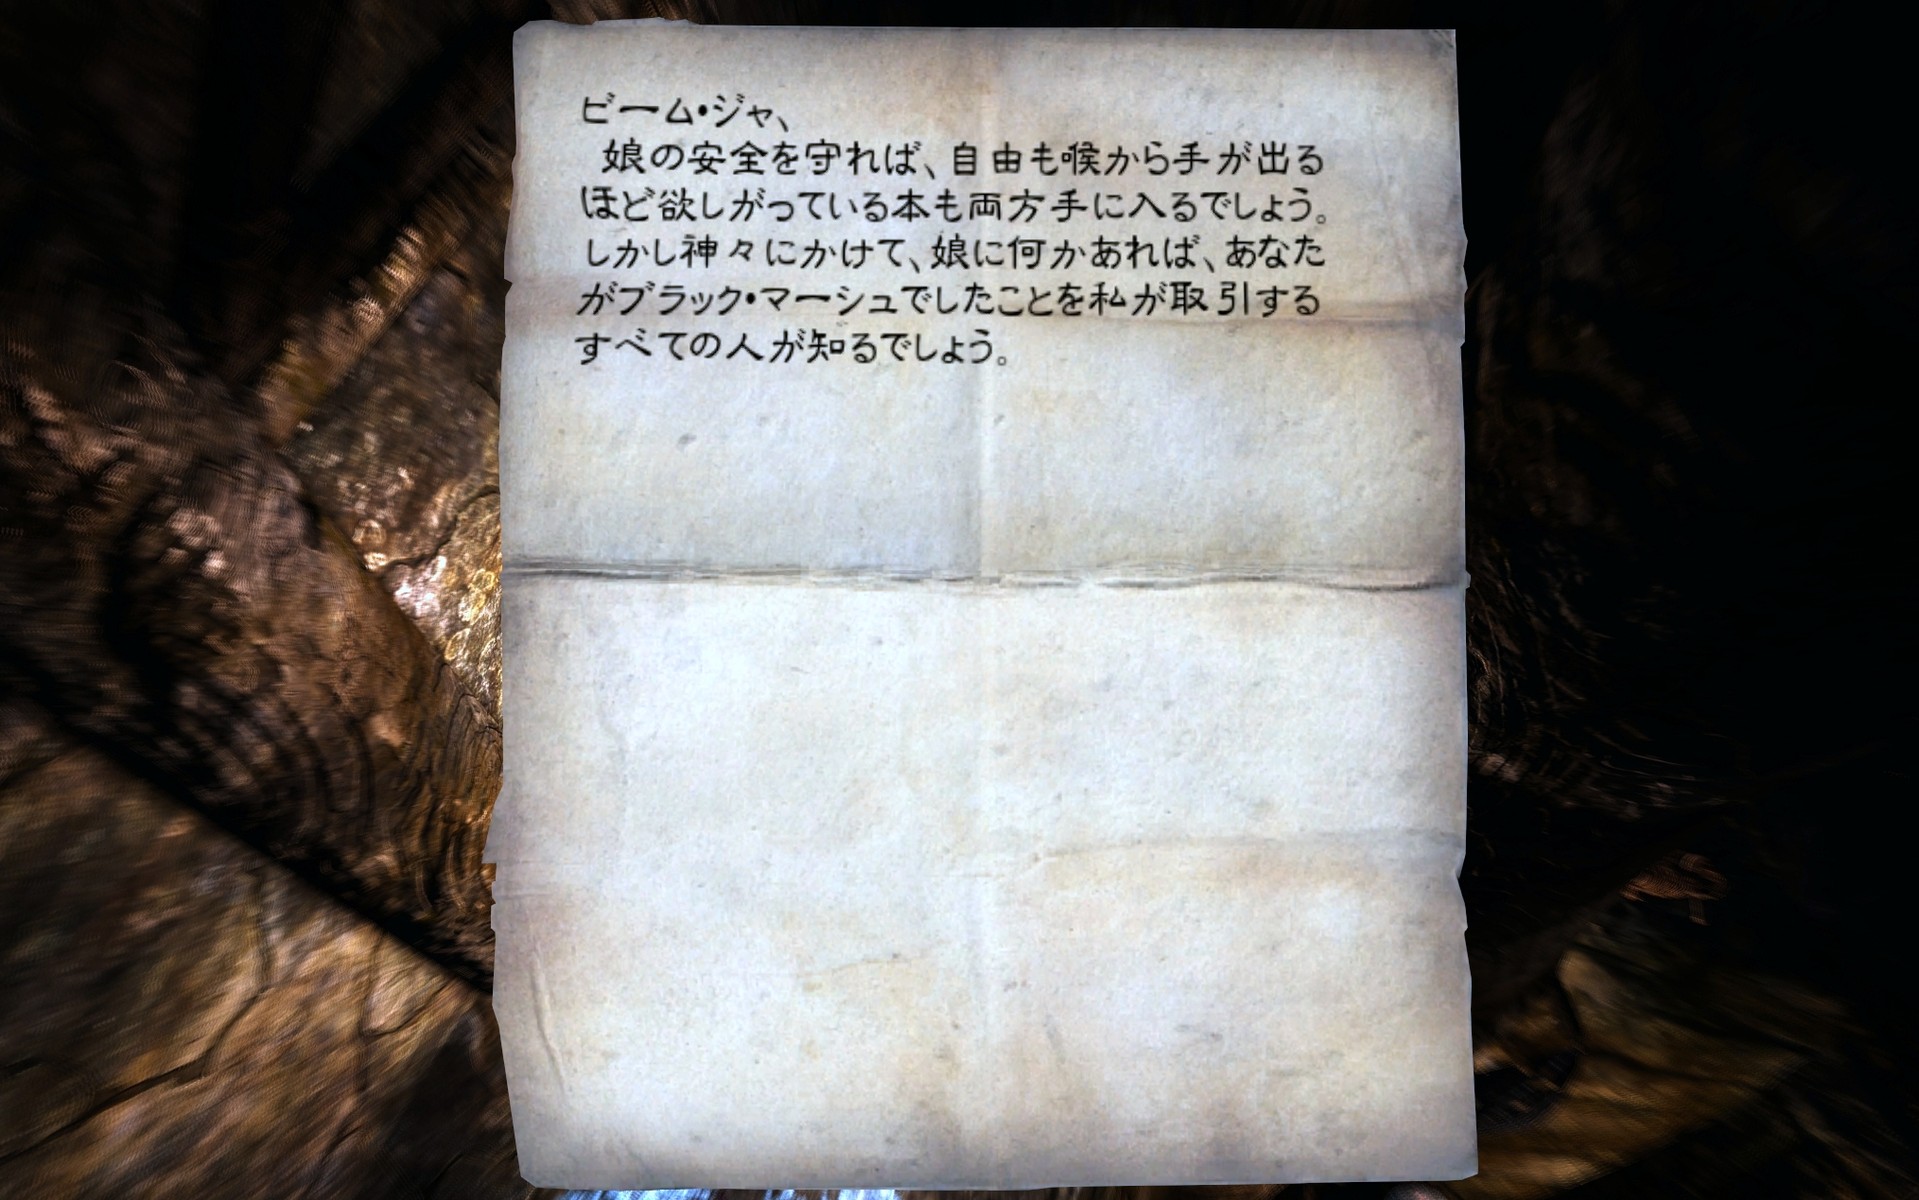 ビーム・ジャ、
娘の安全を守れば、自由も喉から手が出る
ほど欲しがっている本も両方手に入るでしょう。
しかし神々にかけて、娘に何かあれば、あなた
がブラック・マーシュでしたことを私が取引する
すべての人が知るでしょう。